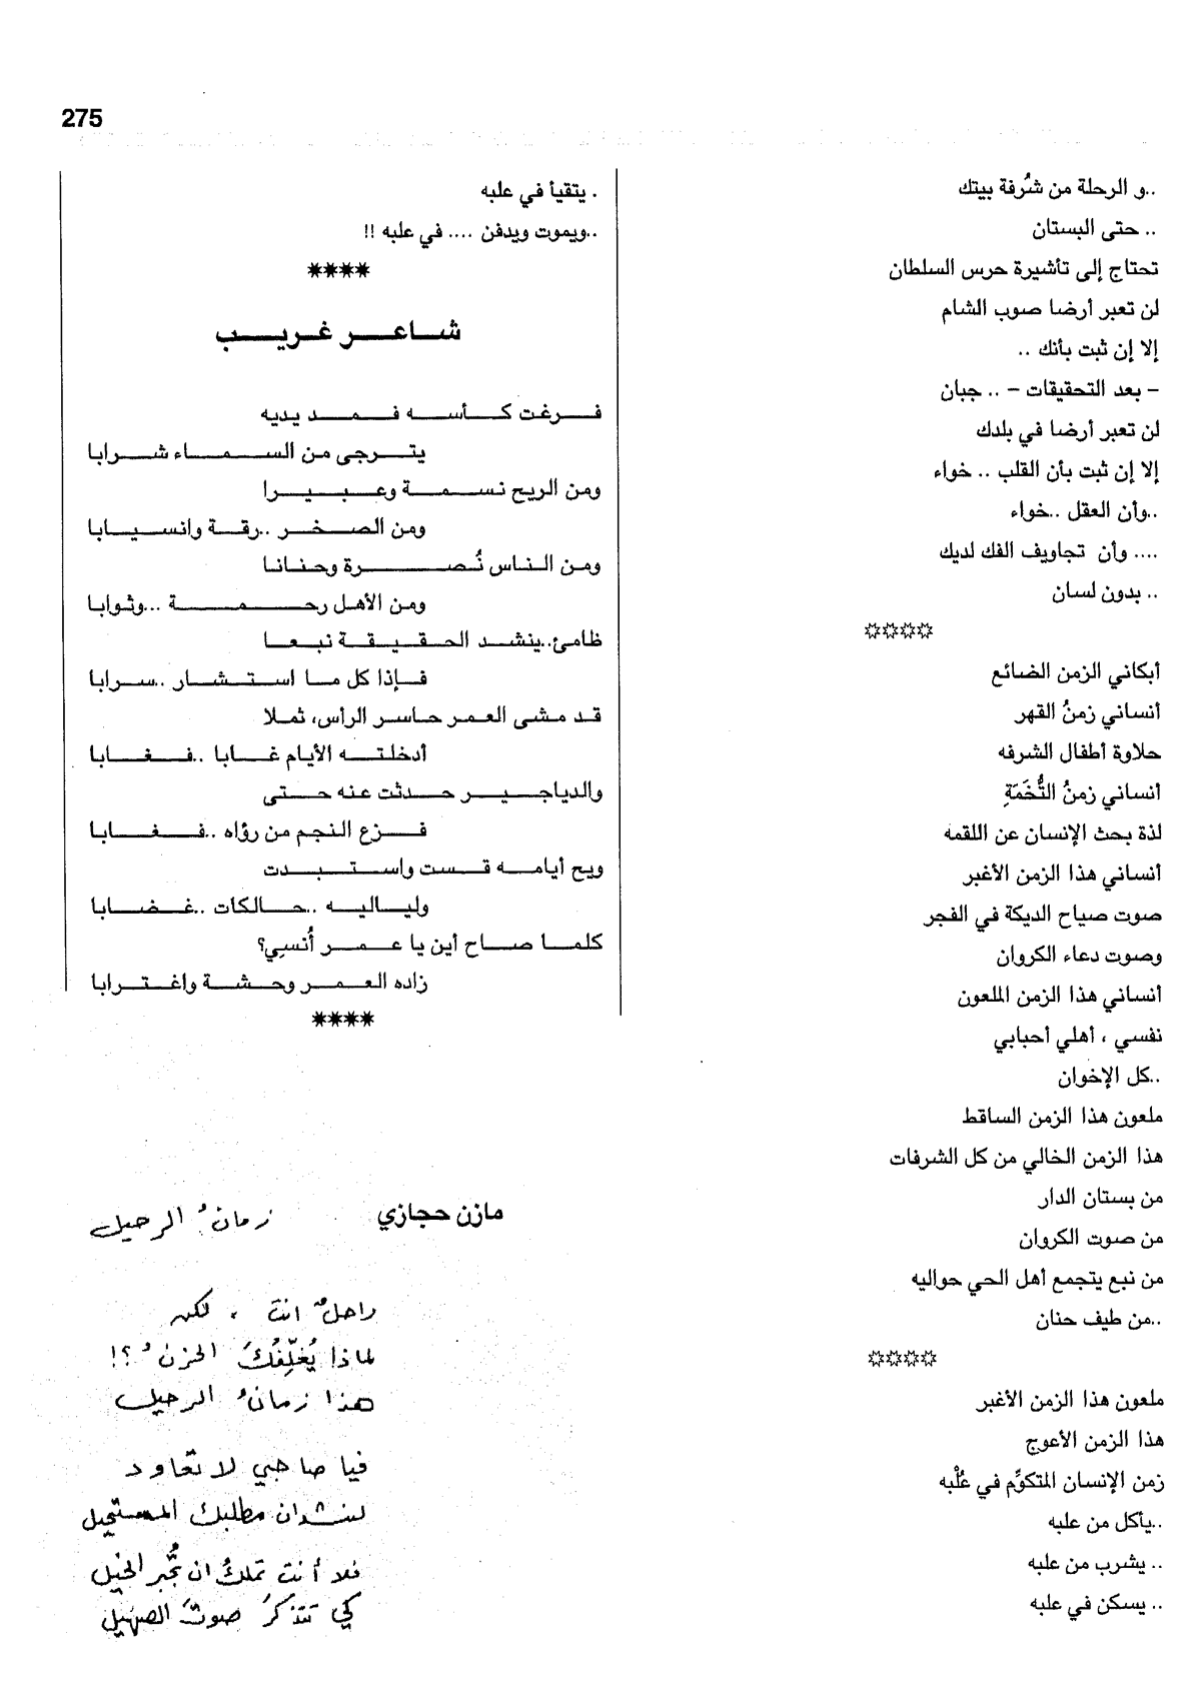 275
..و الرحلة من شُرفة بيتك
.. حتى البستان
تحتاج إلى تأشيرة حرس السلطان
لن تعبر أرضا صوب الشام
إلا إن ثبت بأنك ..
– بعد التحقيقات – .. جبان
لن تعبر أرضا في بلدك
إلا إن ثبت بأن القلب .. خواء
..وأن العقل ..خواء
.... وأن تجاويف الفك لديك
.. بدون لسان
☼☼☼☼
أبكاني الزمن الضائع
أنساني زمنُ القهر
حلاوة أطفال الشرفه
أنساني زمنُ التُّخَمَةِ
لذة بحث الإنسان عن اللقمه
أنساني هذا الزمن الأغبر
صوت صياح الديكة في الفجر
وصوت دعاء الكروان
أنساني هذا الزمن الملعون
نفسي ، أهلي أحبابي
..كل الإخوان
ملعون هذا الزمن الساقط
هذا الزمن الخالي من كل الشرفات
من بستان الدار
من صوت الكروان
من نبع يتجمع أهل الحي حواليه
..من طيف حنان
☼☼☼☼
ملعون هذا الزمن الأغبر
هذا الزمن الأعوج
زمن الإنسان المتكوِّم في عُلْبه
..يأكل من علبه
.. يشرب من علبه
.. يسكن في علبه
. يتقيأ في علبه
..ويموت ويدفن .... في علبه !!
✷✷✷✷
شاعر غريب
فرغت كأسه فمد يديه
يترجى من السماء شرابا
ومن الريح نسمة وعبيرا
ومن الصخر ..رقة وانسيابا
ومن الناس نُصرة وحنانا
ومن الأهل رحمة ...وثوابا
ظامئ..ينشد الحقيقة نبعا
فإذا كل ما استشار ..سرابا
قد مشى العمر حاسر الرأس، ثملا
أدخلته الأيام غابا ..فغابا
والدياجير حدثت عنه حتى
فزع النجم من رؤاه ..فغابا
ويح أيامه قست واستبدت
ولياليه ..حالكات ..غضابا
كلما صاح أين يا عمر أُنسي؟
زاده العمر وحشة واغترابا
✷✷✷✷
مازن حجازي زمانُ الرحيل
راحلٌ انت ، لكن
لماذا يُغلِّفُكَ الحزنُ ؟!
هذا زمانُ الرحيل
فيا صاحبي لا تعاود
لنشدان مطلبك المستحيل
فلا أنت تملكُ ان تُجبر الخيل
كي تتذكرَ صوتَ الصهيل